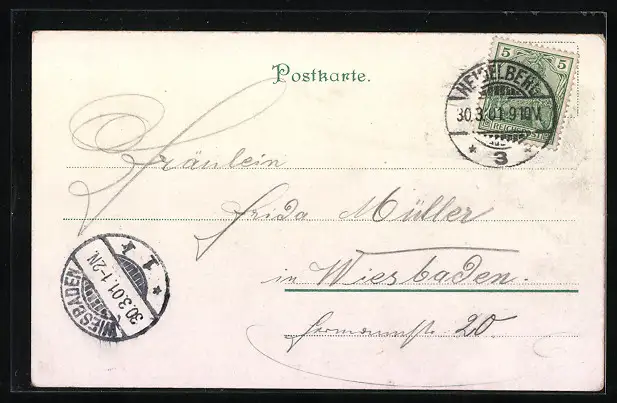 Postkarte.
5 5
REICHSPOST
HEIDELBERG
30.3.01.9-10V.
* 3 *
Fräulein
Frida Müller
in Wiesbaden.
20.
WIESBADEN
30.3.01.1-2N.
* 1 *